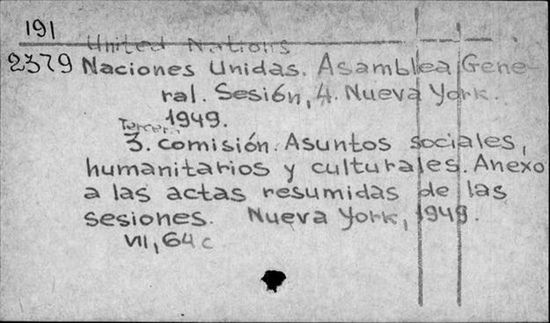 191
United Nations
2379 Naciones Unidas. Asamblea Gene-
ral. Sesión, 4. Nueva York.
1949.
Tercera
3. comisión. Asuntos sociales,
humanitarios y culturales. Anexo
a las actas resumidas de las
sesiones. Nueva York, 1949.
VII, 64 c